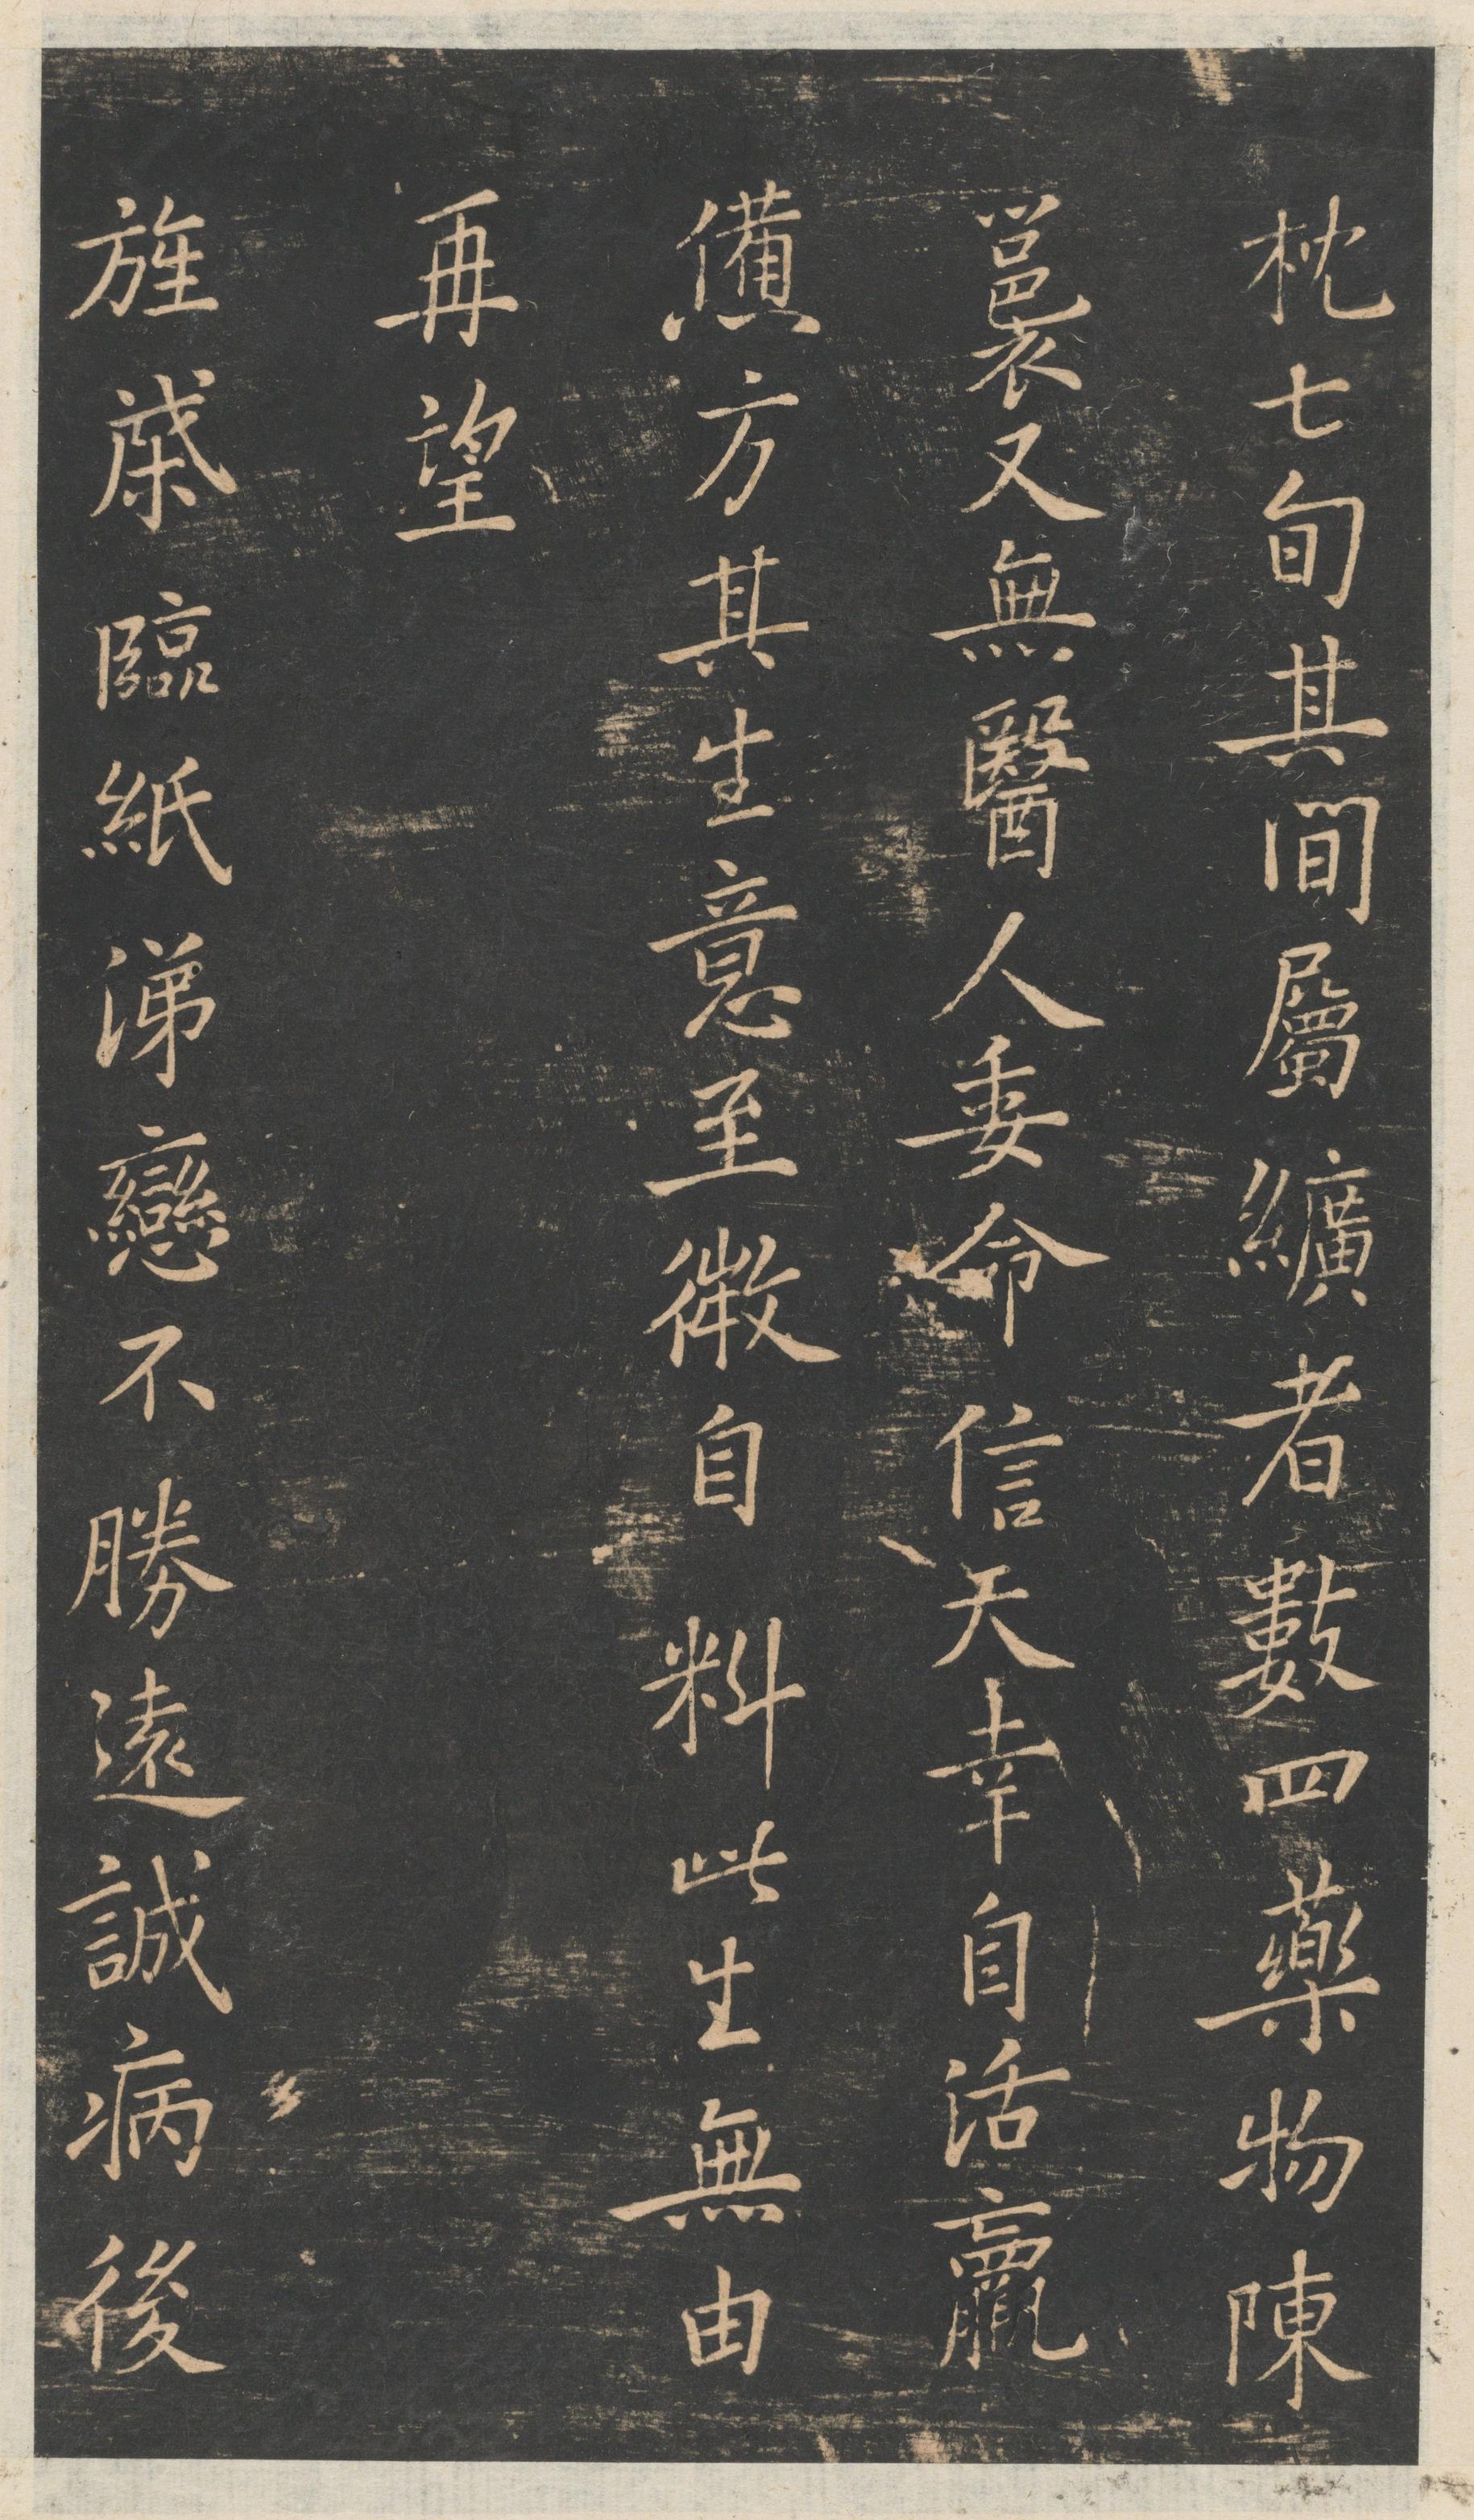 枕七旬其間屬纊者數四藥物陳
裛又無醫人委命信天幸自活羸
憊方其生意至微自料此生無由
再望
旌棨臨紙涕戀不勝遠誠病後